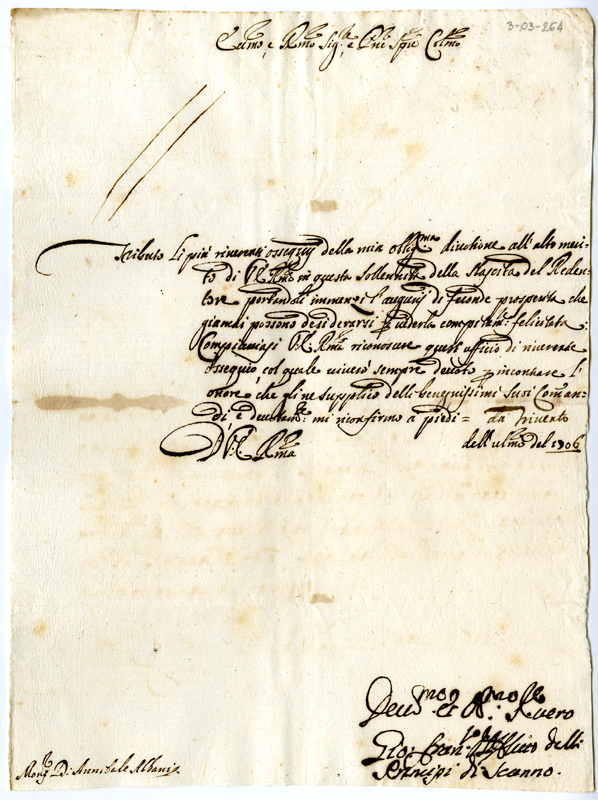 3-03-264
e Rmo Sigr e
Tributo li più riverenti ossequij della mia obligma divotione all'alto meri-
to di V.S. Rma in questa sollennità della Nascita del Reden-
tore portandoli innanzi l'augurij di feconde prosperità che
giamai possono desiderarsi p vederla felicitata:
Compiacciasi V.S. Rma riconoscere quest ufficio di riverente
ossequio, col quale viverò sempre devoto p incontrare l'
onore che gli ne supplico delli benegnissimi suoi Coman-
di, e mi riconfirmo a piedi= da Trivento
dell'ulmo del 1706
D V.S. Rma
Devmo et
Gio: Franco d'Afflitto delli
Principi di Scanno.
Monsr D: Annibale Albani